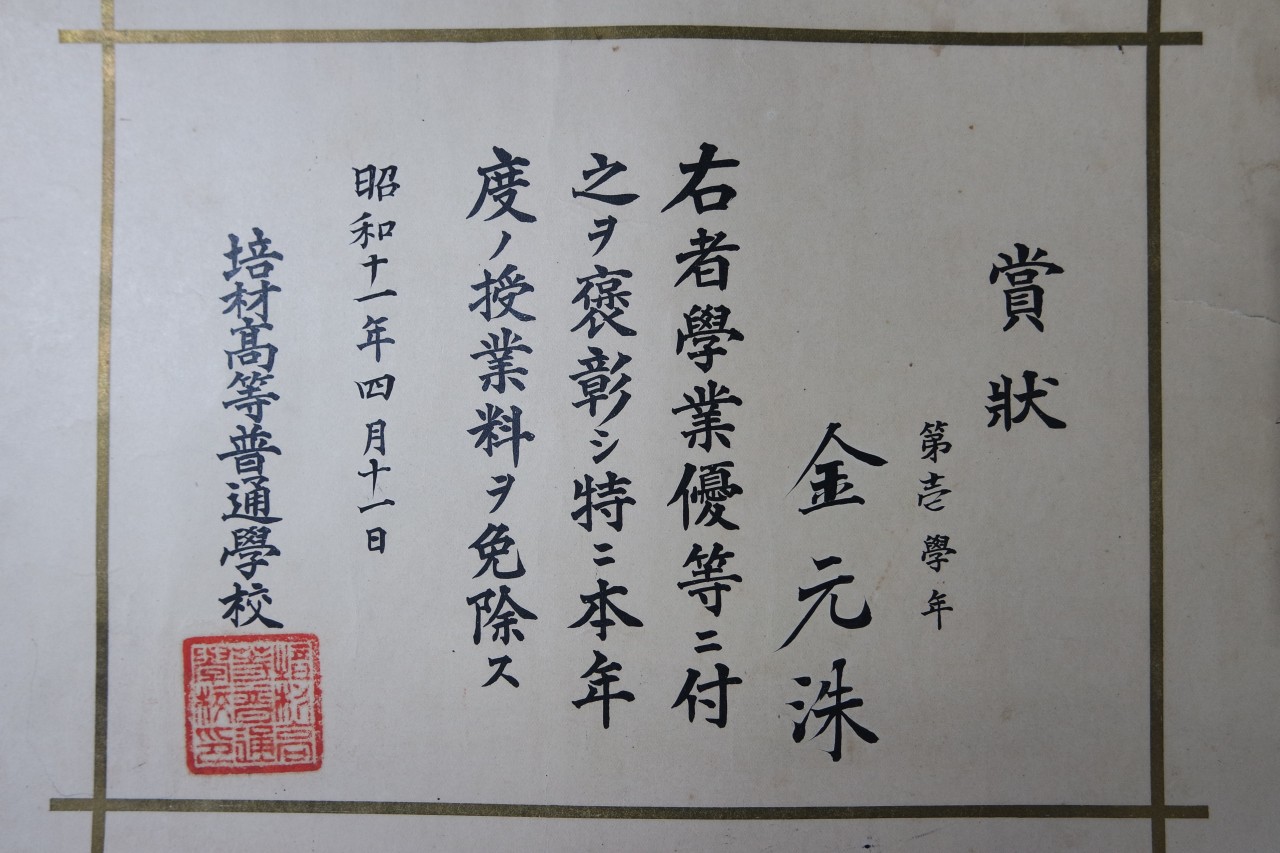 賞狀
第壱學年
金元洙
右者學業優等ニ付
之ヲ褒彰シ特ニ本年
度ノ授業料ヲ免除ス
昭和十一年四月十一日
培材高等普通學校
培材高
等普通
學校印